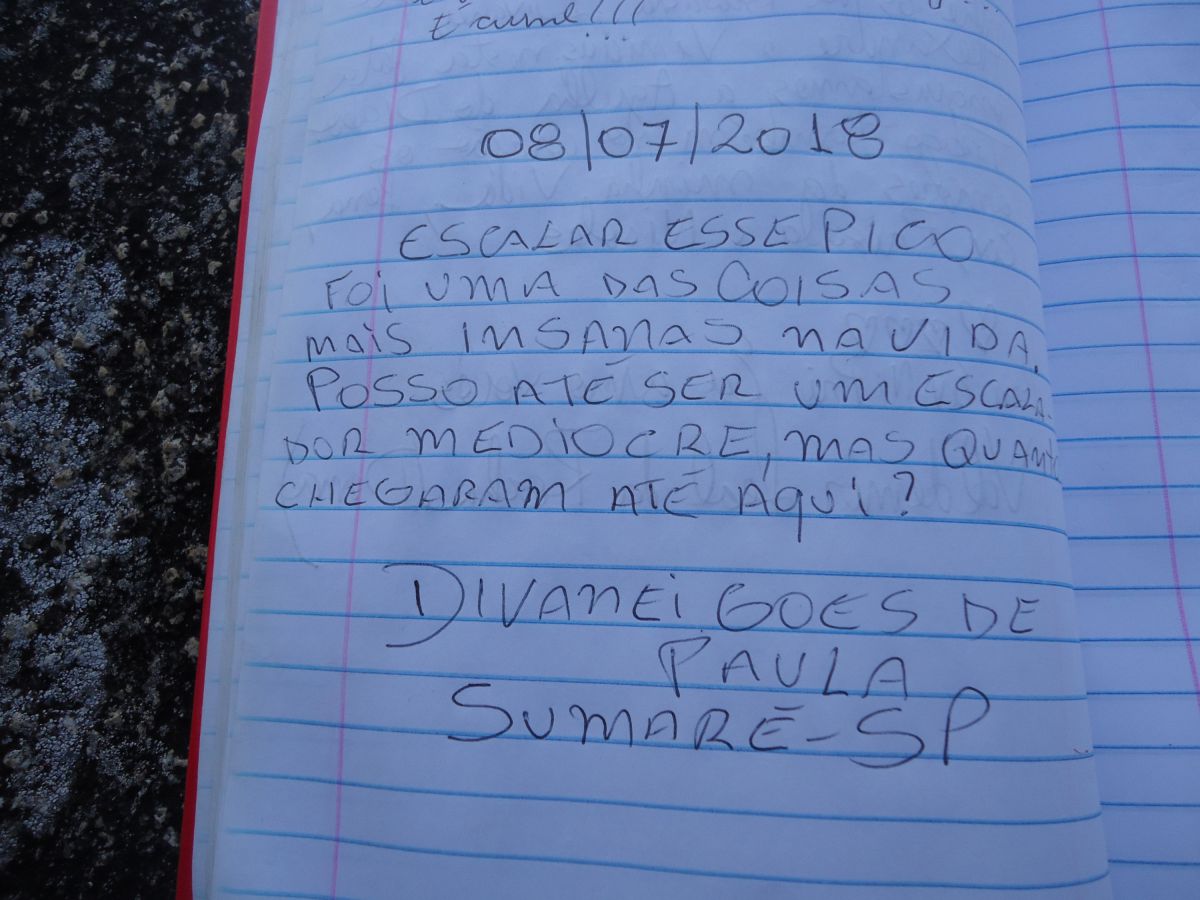 É cume!!!
08/07/2018
ESCALAR ESSE PICO
FOI UMA DAS COISAS
MAIS INSANAS NA VIDA.
POSSO ATÉ SER UM ESCALA-
DOR MEDIOCRE, MAS QUANTOS
CHEGARAM ATÉ AQUI?
DIVANEI GOES DE
PAULA
SUMARÉ-SP